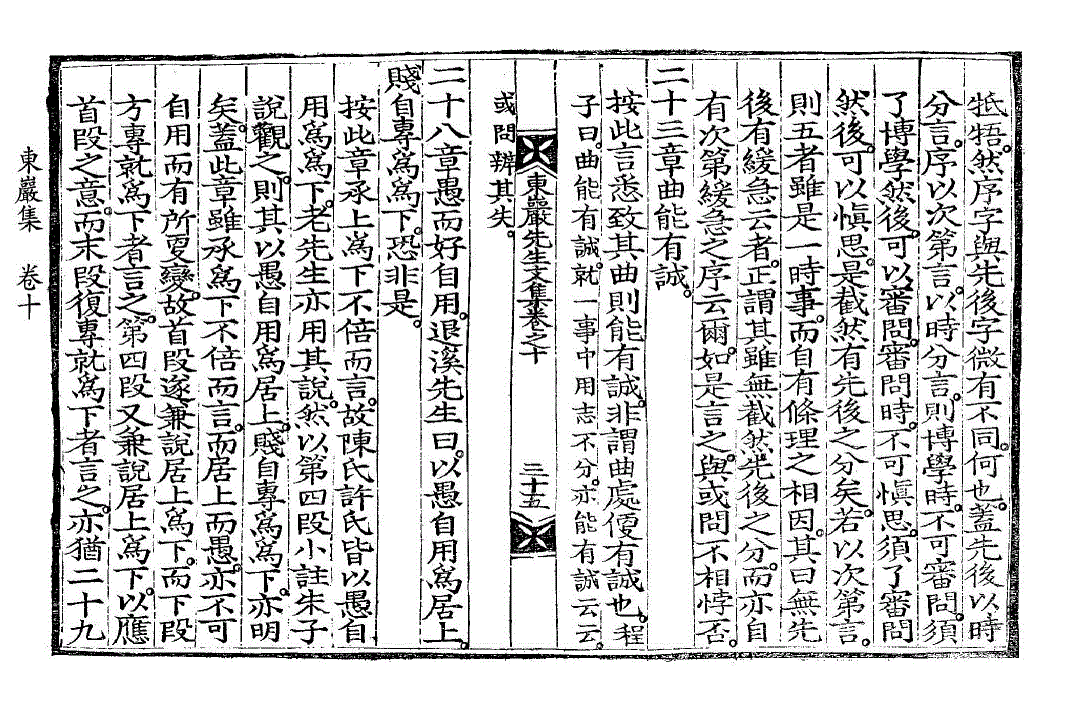 牴牾。然序字與先後字微有不同。何也。蓋先後以時
分言。序以次第言。以時分言。則博學時。不可審問。須
了博學然後。可以審問。審問時。不可愼思。須了審問
然後。可以愼思。是截然有先後之分矣。若以次第言。
則五者雖是一時事。而自有條理之相因。其曰無先
後有緩急云者。正謂其雖無截然先後之分。而亦自
有次第緩急之序云爾。如是言之。與或問不相悖否。
二十三章曲能有誠。
按此言悉致其曲則能有誠。非謂曲處便有誠也。程
子曰。曲能有誠。就一事中用志不分。亦能有誠云云。
或問辨其失。
東巖先生文集卷之十
三十五
二十八章愚而好自用。退溪先生曰。以愚自用爲居上。
賤自專爲爲下。恐非是。
按此章承上爲下不倍而言。故陳氏許氏皆以愚自
用爲爲下。老先生亦用其說。然以第四段小註朱子
說觀之。則其以愚自用爲居上。賤自專爲爲下。亦明
矣。蓋此章雖承爲下不倍而言。而居上而愚。亦不可
自用而有所更變。故首段遂兼說居上爲下。而下段
方專就爲下者言之。第四段又兼說居上爲下。以應
首段之意。而末段復專就爲下者言之。亦猶二十九
東巖集 卷十